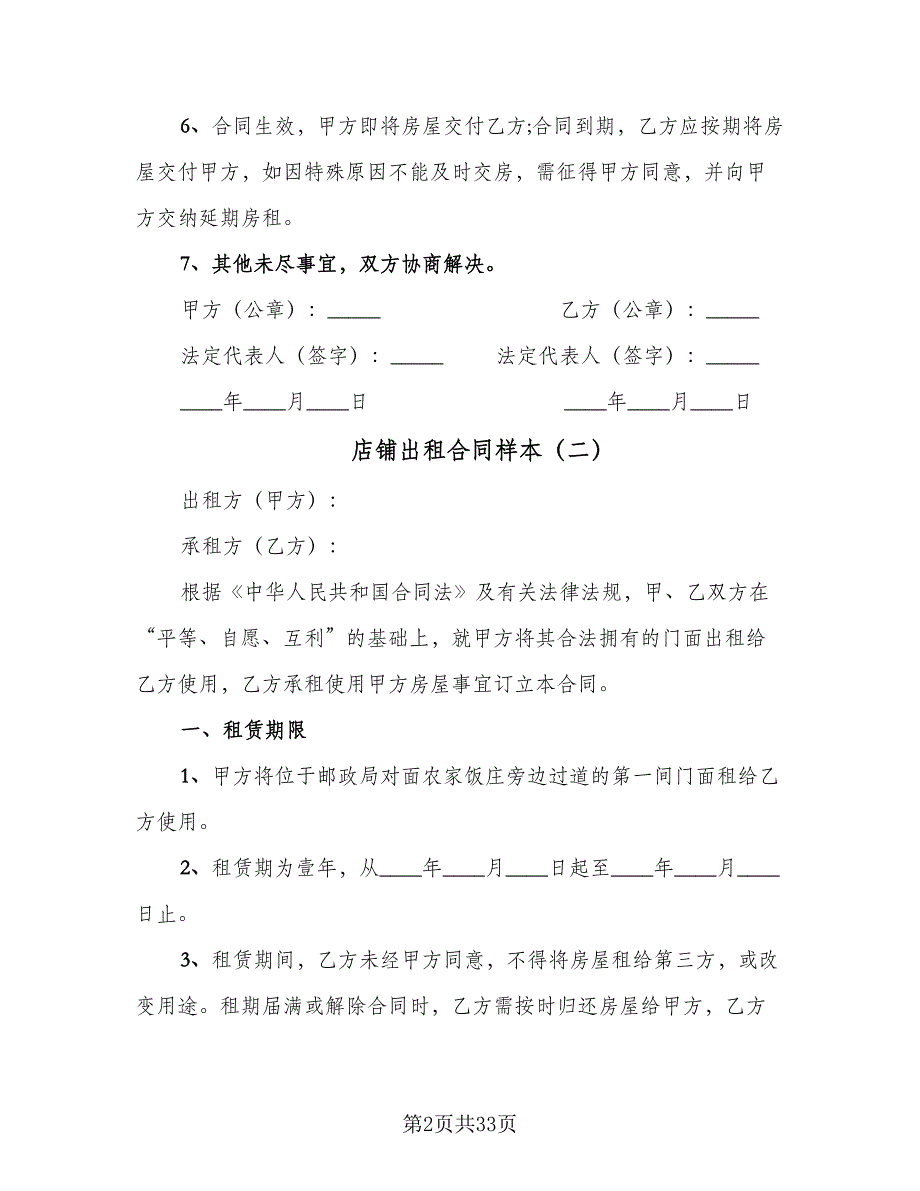 6、合同生效，甲方即将房屋交付乙方;合同到期，乙方应按期将房
屋交付甲方，如因特殊原因不能及时交房，需征得甲方同意，并向甲
方交纳延期房租。
7、其他未尽事宜，双方协商解决。
甲方（公章）：_____ 乙方（公章）：_____
法定代表人（签字）：_____ 法定代表人（签字）：_____
____年____月____日 ____年____月____日
店铺出租合同样本（二）
出租方（甲方）：
承租方（乙方）：
根据《中华人民共和国合同法》及有关法律法规，甲、乙双方在
“平等、自愿、互利”的基础上，就甲方将其合法拥有的门面出租给
乙方使用，乙方承租使用甲方房屋事宜订立本合同。
一、租赁期限
1、甲方将位于邮政局对面农家饭庄旁边过道的第一间门面租给乙
方使用。
2、租赁期为壹年，从____年____月____日起至____年____月____
日止。
3、租赁期间，乙方未经甲方同意，不得将房屋租给第三方，或改
变用途。租期届满或解除合同时，乙方需按时归还房屋给甲方，乙方
第2页共33页